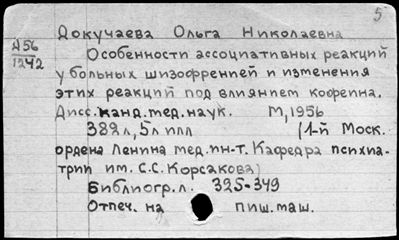 5
Докучаева Ольга Николаевна
Д56
1242
Особенности ассоциативных реакций
у больных шизофренией и изменения
этих реакций под влиянием кофеина.
Дисс. канд. мед. наук. М, 1956
382 л, 5 л илл (1-й Моск.
ордена Ленина мед. ин-т. Кафедра психиа-
трии им. С.С. Корсакова)
Библиогр. л. 325-349
Отпеч. на пиш. маш.